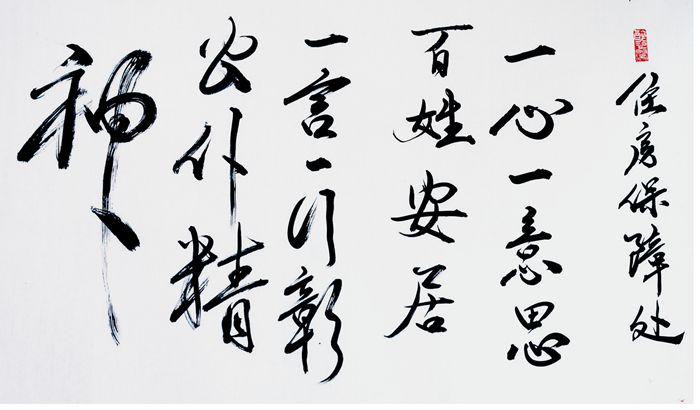 住房保障处
一心一意思
百姓安居
一言一行彰
公仆精
神